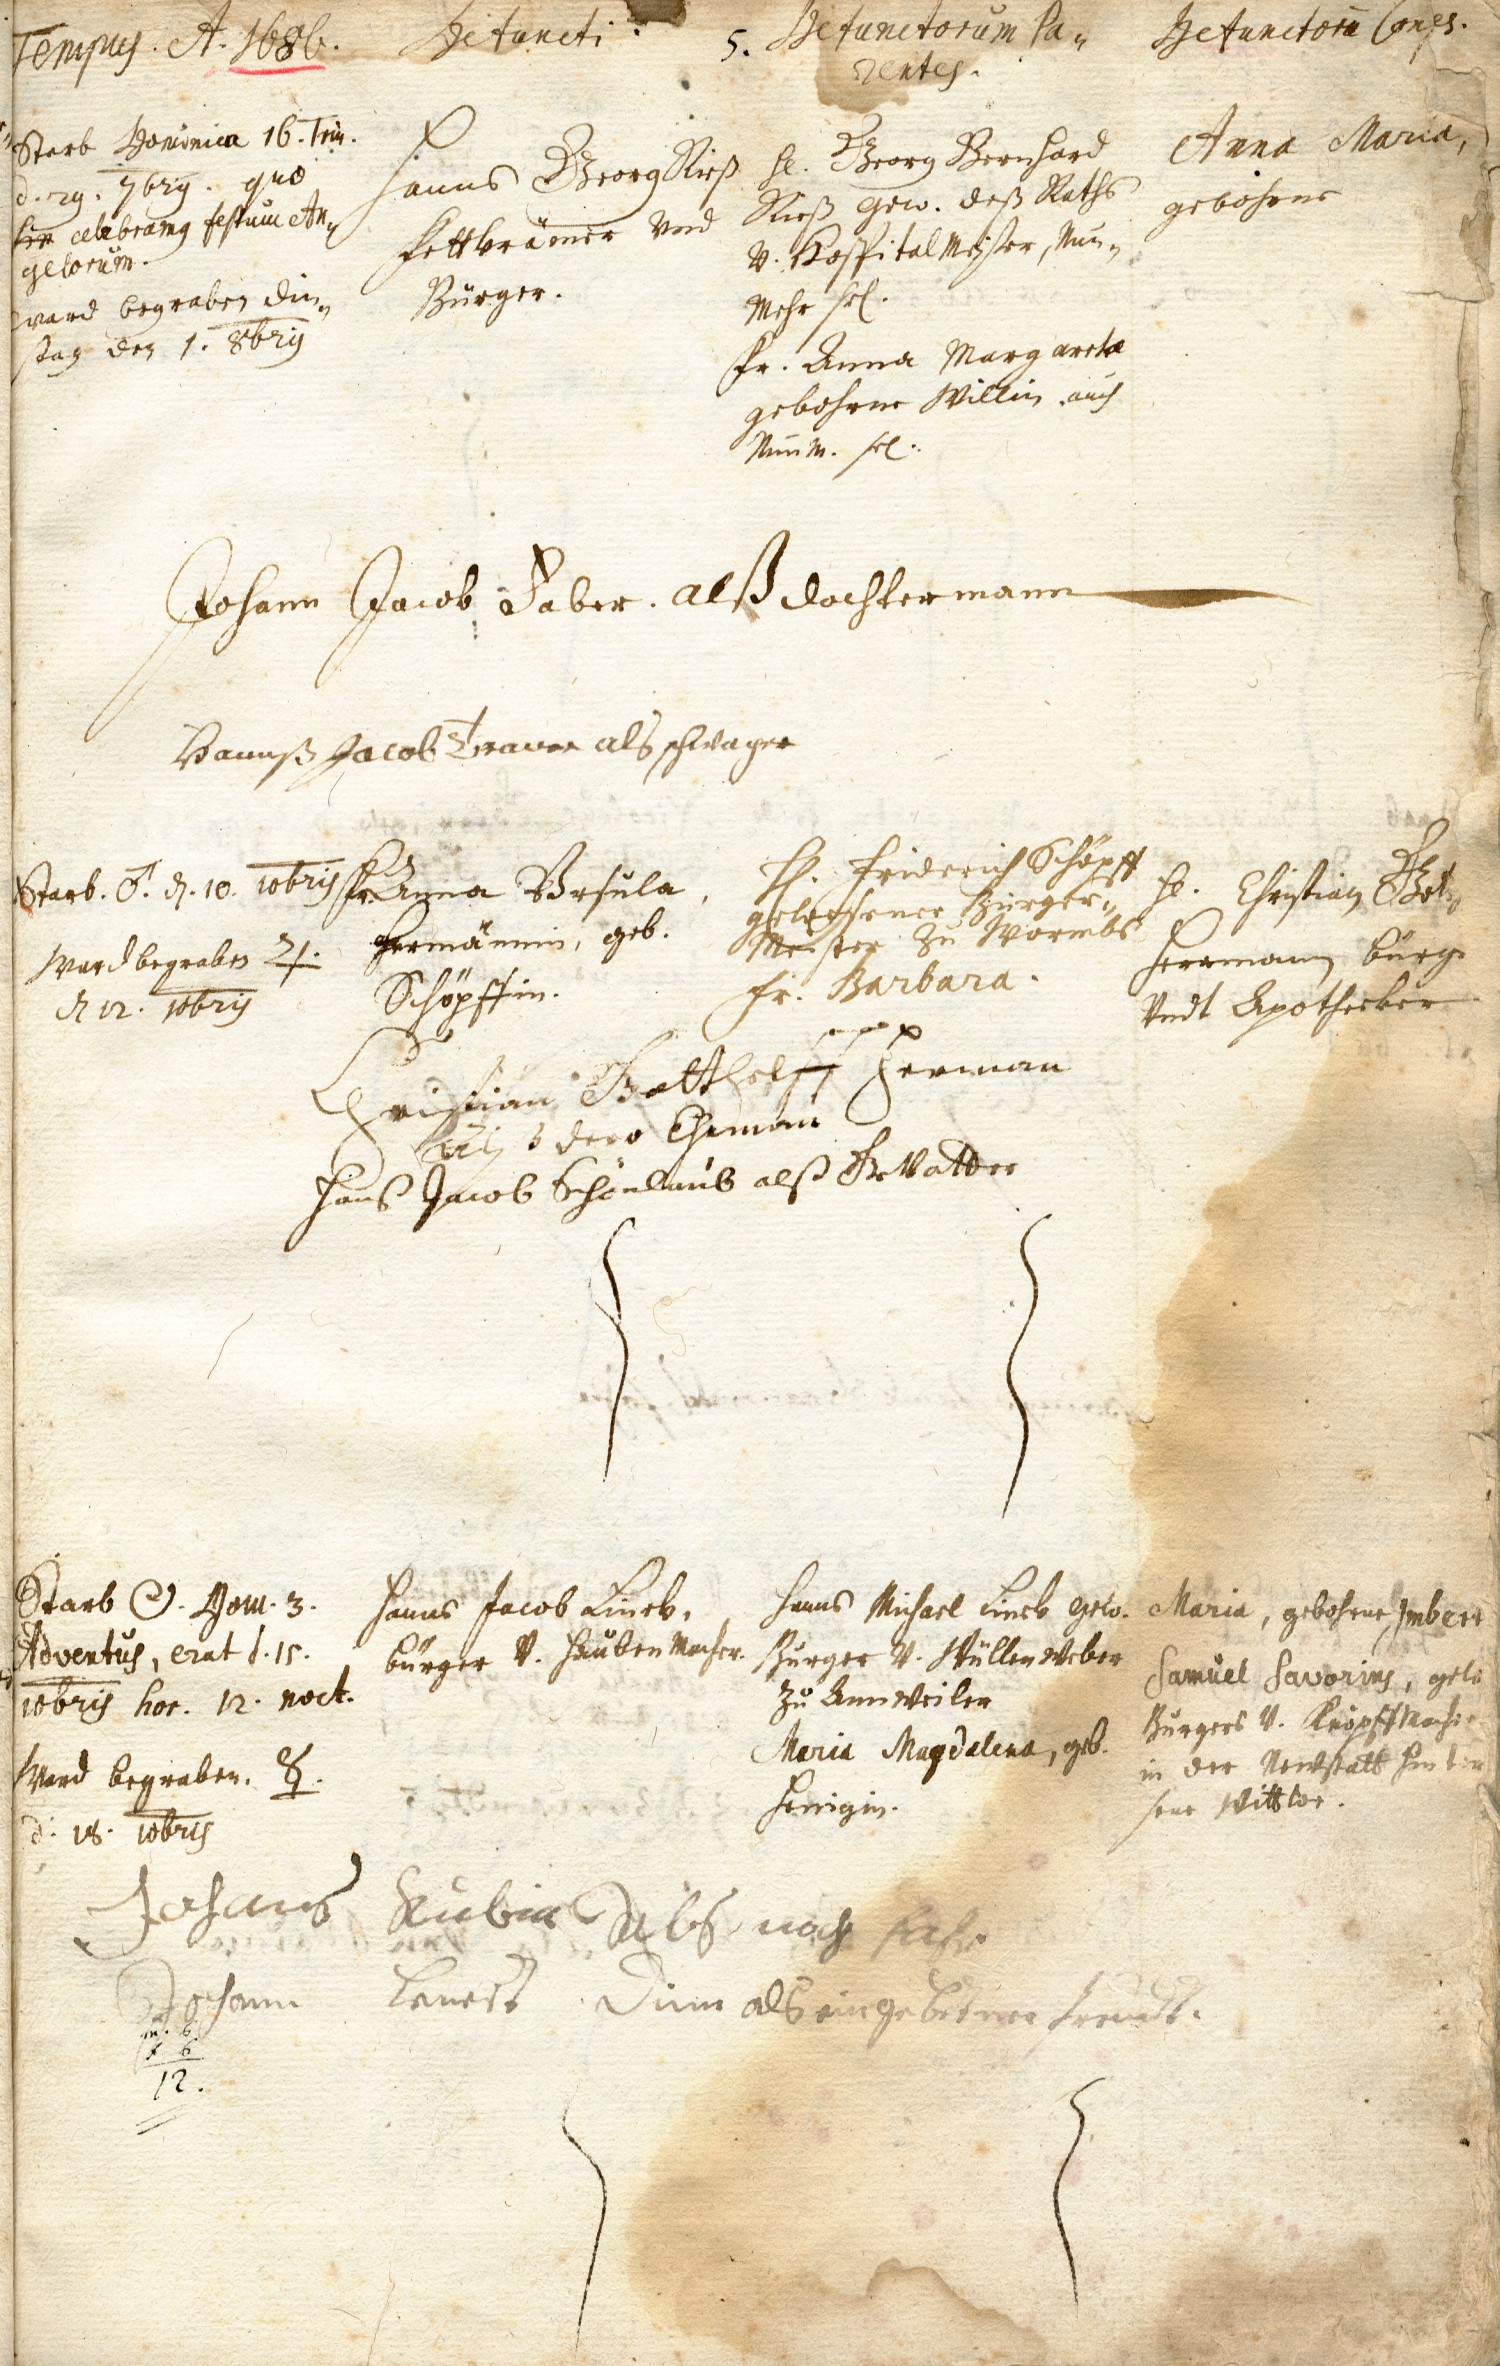 Tempus. A. 1686.
Defuncti:
5. Defunctorum Pa„
rentes.
Defunctorū Conjs.
Starb Dominica 16. Trin.
d. 29. 7bris. quo
celebramus festum An„
gelorum.
ward begraben din„
stag den 1. 8bris
Hanns Georg Rieß
Fettkrämer Vnd
Bürger.
H. Georg Bernhard
Rieß gew. deß Raths
V. HospitalMeister, Nun„
Mehr sel.
Fr. Anna Margareta
gebohrne Willin auch
NunM. sel.
Anna Maria,
gebohrne
Johann Jacob Faber. alß dochtermann
Hannß Jacob Traver als schwager
Starb. ♂. d. 10. 10bris
Ward begraben ♃.
d 12. 10bris
Fr. Anna Vrsula
Hermännin, geb.
Schöpffin.
H. Friderich Schöpff
gewesener Bürger„
Meister zu Wormbs
Fr. Barbara.
H. Christian Got
Herrmann bürg
Vndt Apothecker
Christian Gotthelff Herman
Alß dero Ehemañ
Hanß Jacob Schönlaub alß Gevatter
Starb ☉. Dom. 3.
Adventus, erat d. 15.
10bris hor. 12. noct.
Ward begraben. ☿.
d. 18. 10bris
Hanns Jacob Linck,
bürger V. Haubenmacher.
Hanns Michael Linck gew.
Burger V. Wüllenweber
Zu Annweiler
Maria Magdalena, geb.
Henigin.
Maria, gebohrne Imbert
Samuel Savorins, gew
Burgers V. Knöpffmacher
in der Newstatt hinter
sene Wittwe.
Johans Rubin Als noch
Johann Ernest Dimm als eingebetner freundt.
m. 6
f. 6
12.